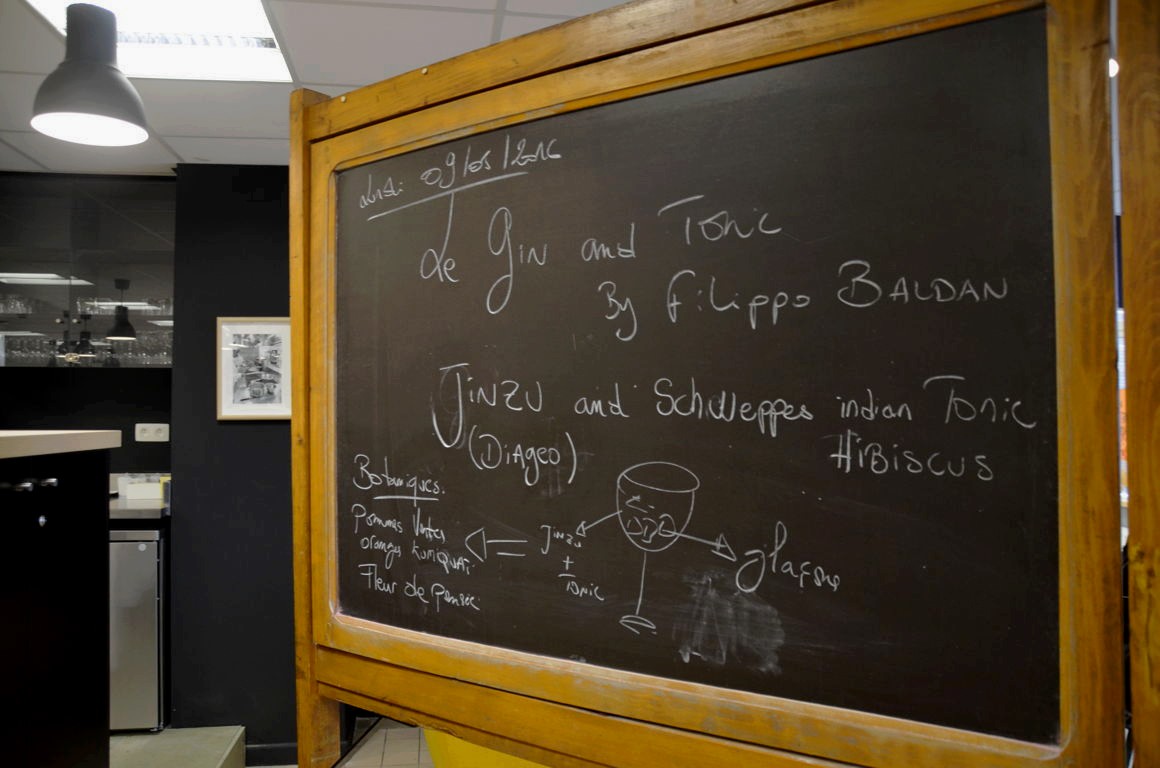 Lundi 09/05/2016
Le Gin and Tonic
By Filippo BALDAN
JINZU and Schweppes indian Tonic
HiBiSCUS
(DiAgeo)
Botaniques.
Pommes Vertes
oranges kumquat
Fleur de
Jinzu
+
Tonic
glaçons